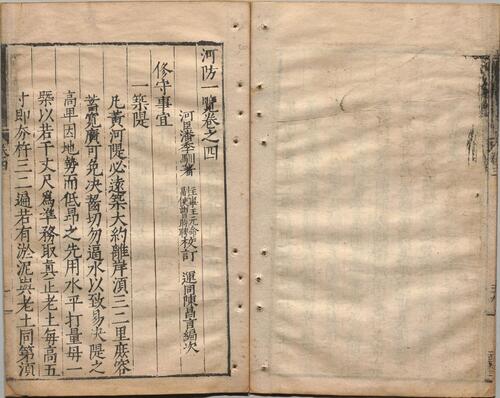 河防一覽卷之四
河臣潘季馴著 校訂 運同陳昌言編次
修守事宜
一築隄
凡黃河隄必遠築大約離岸須三二里庶容
蓄寬廣可免决嚙切勿逼水以致易决隄之
高卑因地勢而低昻之先用水平打量毋一
槩以若干丈尺爲準務取真正老土每高五
寸即夯杵三二遍若有淤泥與老土同第須